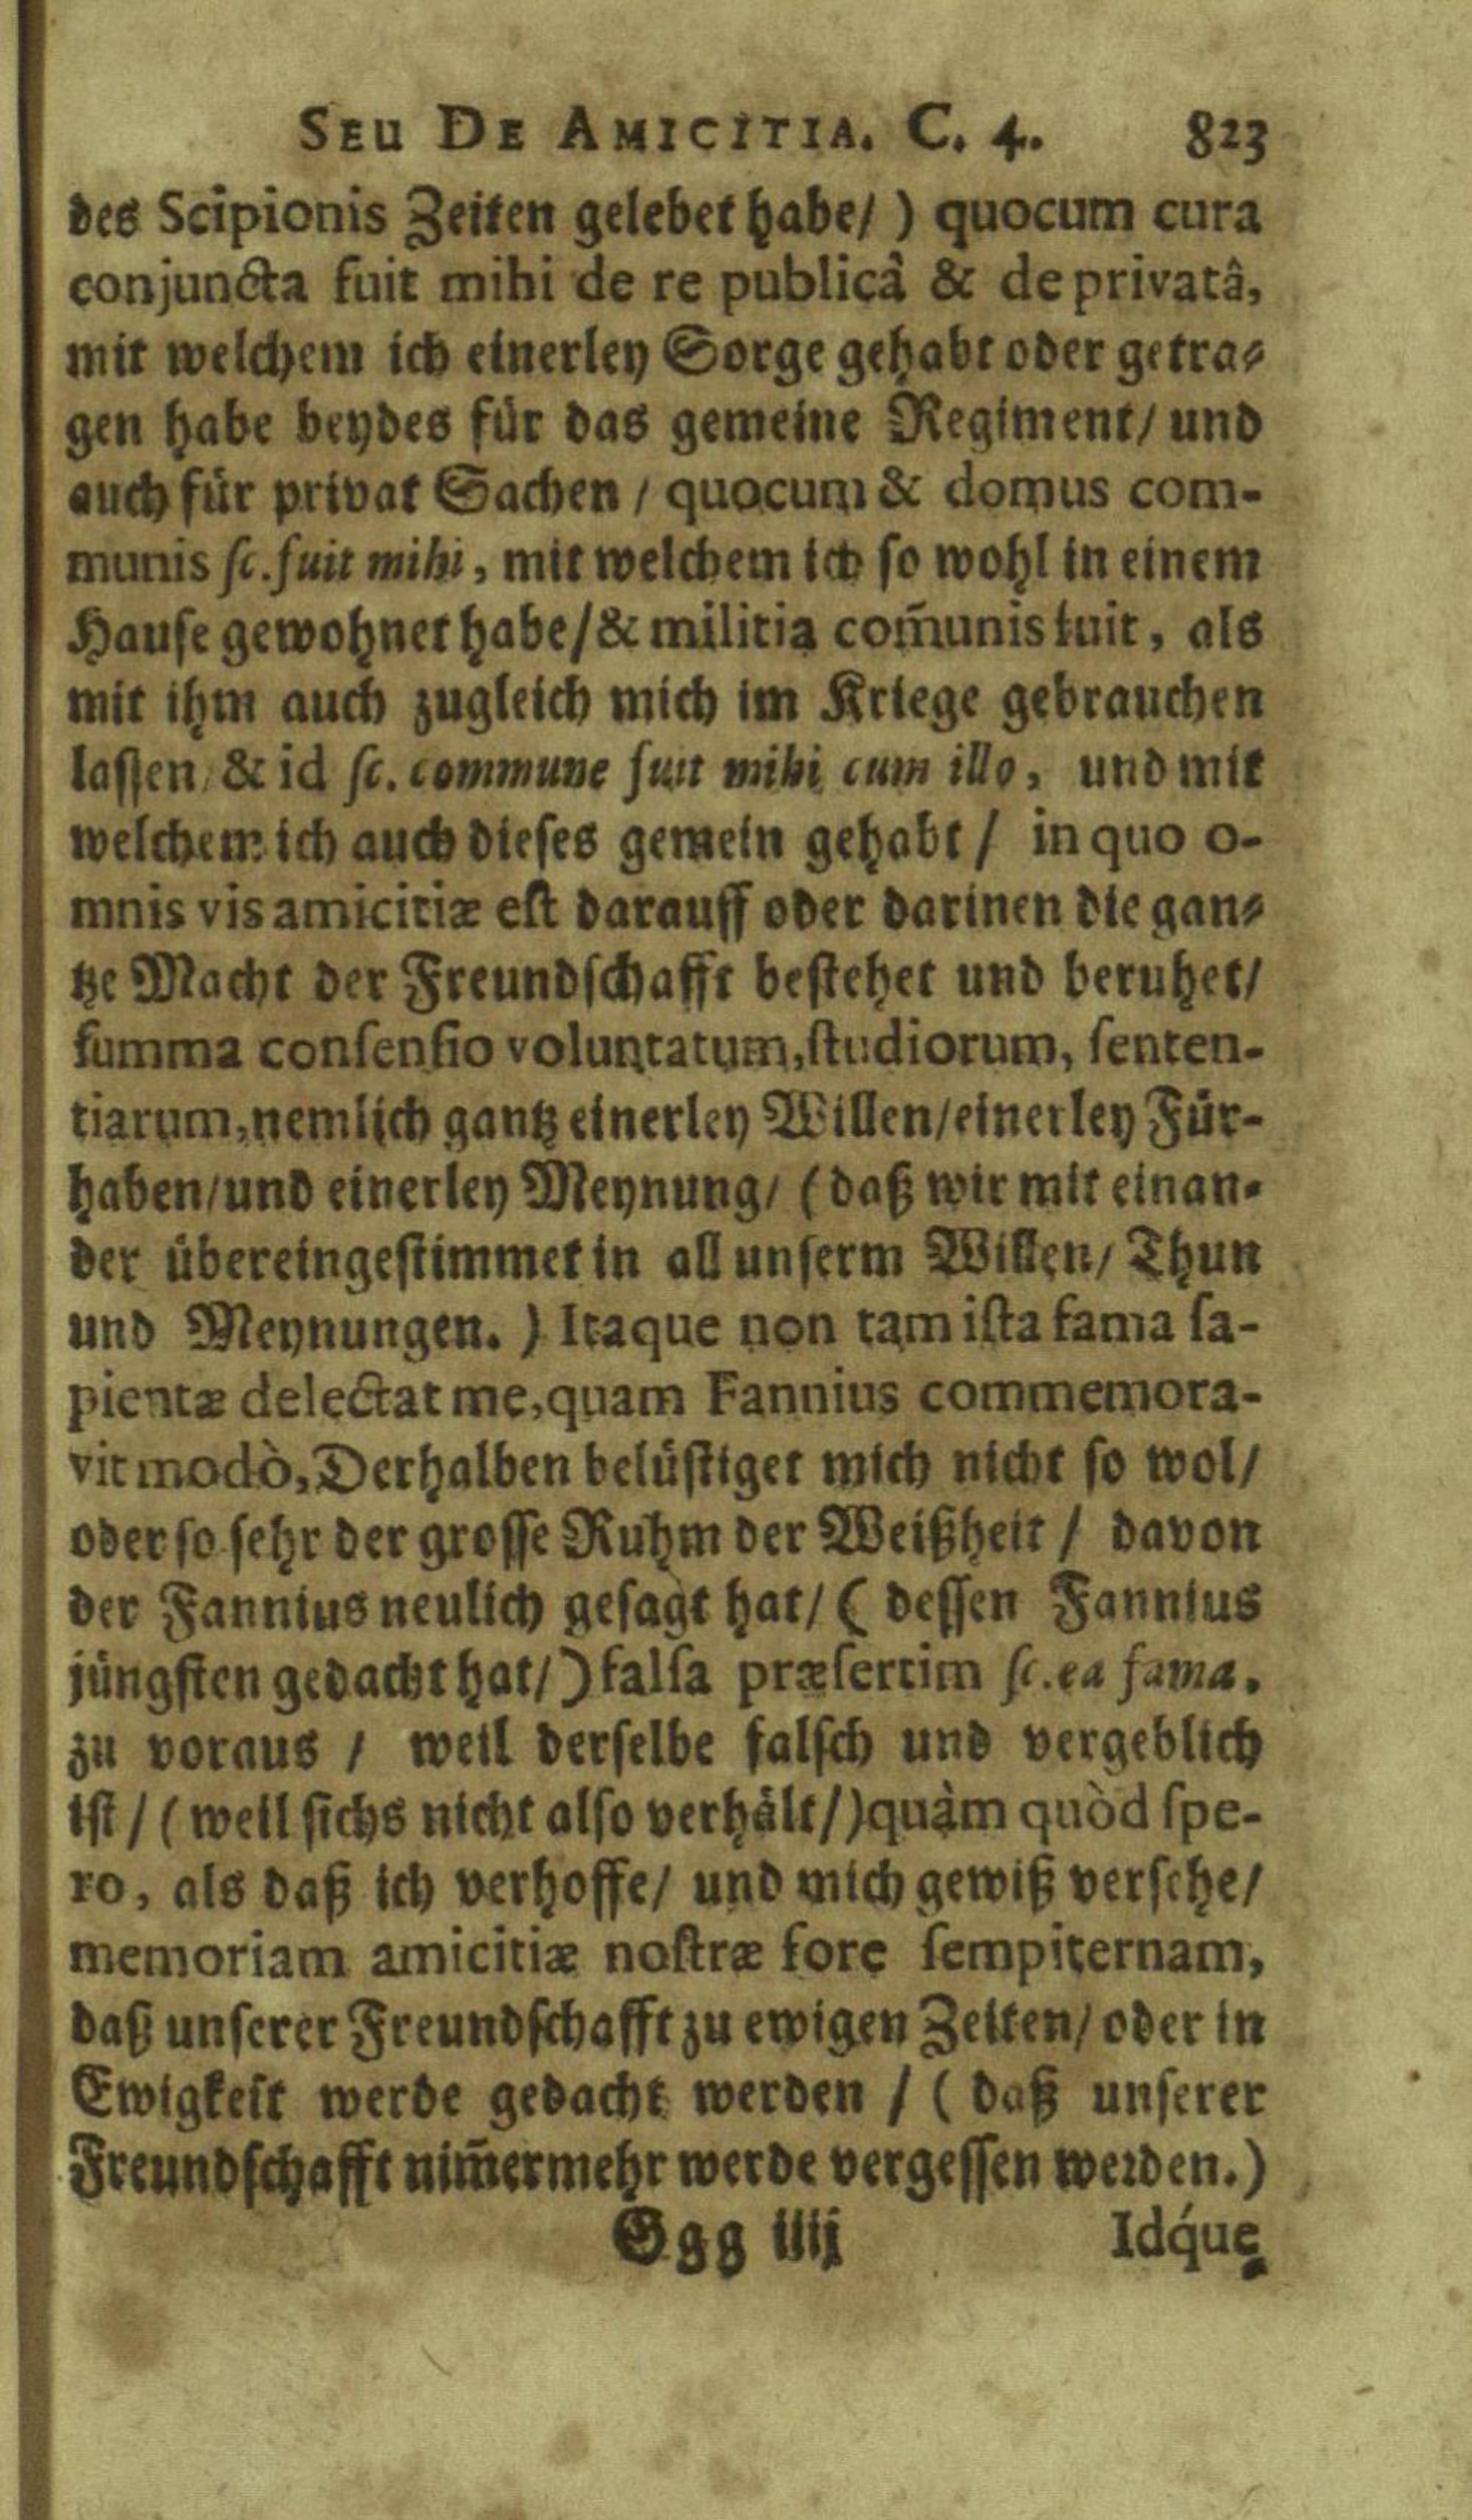 SEU DE AMICITIA. C. 4. 823
des Scipionis Zeiten gelebet habe/) quocum cura
conjuncta fuit mihi de re publicâ & de privatâ,
mit welchem ich einerley Sorge gehabt oder getra-
gen habe beydes für das gemeine Regiment/ und
auch für privat Sachen / quocum & domus com-
munis ſc. fuit mihi, mit welchem ich ſo wohl in einem
Hauſe gewohnet habe/ & militia com̃unis fuit, als
mit ihm auch zugleich mich im Kriege gebrauchen
laſſen/ & id ſc. commune fuit mihi cum illo, und mit
welchem ich auch dieſes gemein gehabt / in quo o-
mnis vis amicitiæ eſt darauff oder darinen die gan-
tze Macht der Freundſchafft beſtehet und beruhet/
ſumma conſenſio voluntatum, ſtudiorum, ſenten-
tiarum, nemlich gantz einerley Willen/ einerley Für-
haben/ und einerley Meynung/ (daß wir mit einan-
der übereingeſtimmet in all unſerm Willen/ Thun
und Meynungen.) Itaque non tam iſta fama ſa-
pientæ delectat me, quam Fannius commemora-
vit modò, Derhalben belüſtiget mich nicht ſo wol/
oder ſo ſehr der groſſe Ruhm der Weißheit / davon
der Fannius neulich geſagt hat/ (deſſen Fannius
jüngſten gedacht hat/) falſa præſertim ſc. ea fama.
zu voraus / weil derſelbe falſch und vergeblich
iſt / (weil ſichs nicht alſo verhält/) quàm quòd ſpe-
ro, als daß ich verhoffe/ und mich gewiß verſehe/
memoriam amicitiæ noſtræ fore ſempiternam,
daß unſerer Freundſchafft zu ewigen Zeiten/ oder in
Ewigkeit werde gedacht werden / (daß unſerer
Freundſchafft nim̃ermehr werde vergeſſen werden.)
Ggg iiij Idq́ue